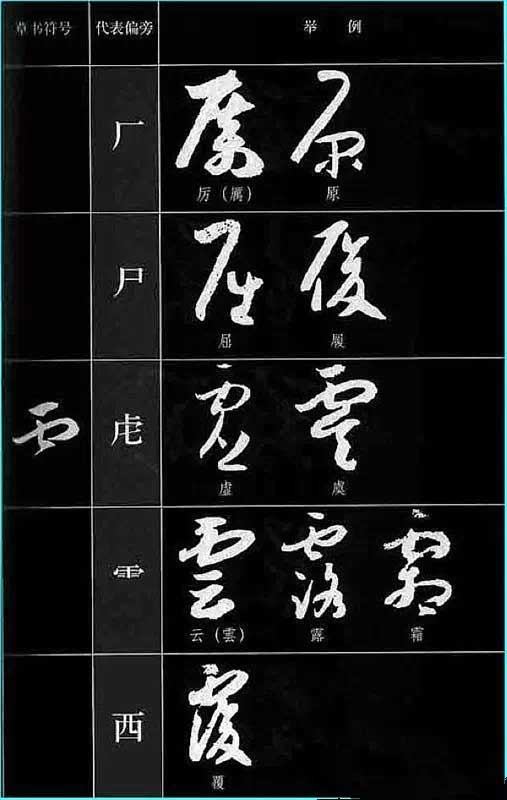 草书符号 代表偏旁 举例
厂
厉（厲） 原
尸
屈 履
虍
虚 虞
⻗
云（雲） 露 霜
西
覆